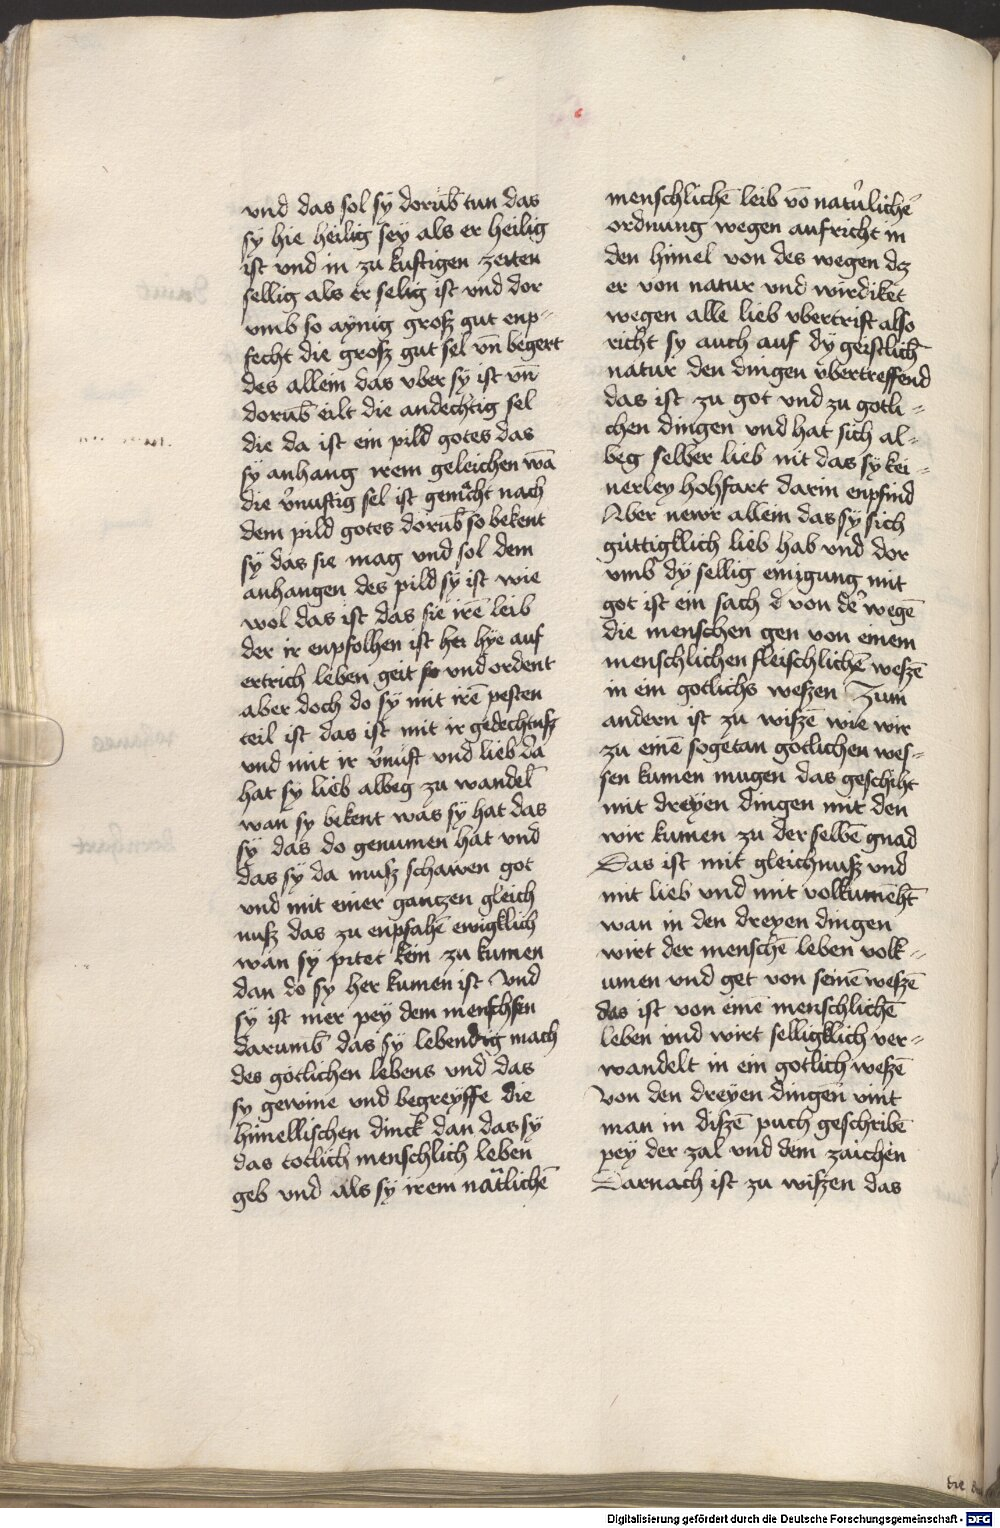 vnd das sol sÿ dorūb tun das
sÿ hie heilig seÿ als er heilig
ist vnd in zu kuftigen zeiten
sellig als er selig ist vnd dor
vmb so aÿnig grosz gut enp-
fecht die grosz gut sel vn̄ begert
des allein das vber sÿ ist vn̄
dorūb eilt die andechtig sel
die da ist ein pild gotes das
sÿ anhang irem geleichen wā
die v̉nuftig sel ist gemacht nach
dem pild gotes dorūb so bekent
sÿ das sie mag vnd sol dem
anhangen des pild sÿ ist wie
wol das ist das sie irē leib
der ir enpfolhen ist hei hÿe auf
ertrich leben geit so vnd ordent
aber doch do sÿ mit irē pesten
teil ist das ist mit ir gedechtnusz
vnd mit ir v̉nuft vnd lieb da
hat sÿ lieb albeg zu wandel̄
wan sy bekent was sÿ hat das
sÿ das do genumen hat vnd
das sÿ da musz schawen got
vnd mit einer gantzen gleich
nusz das zu enpfahē ewigklich
wan sÿ pitet kein zu kumen
dan do sÿ her kumen ist Vnd
sÿ ist mer peÿ dem menschsen
darumb das sÿ lebendig mach
des gotlichen lebens vnd das
sÿ gewine vnd begreÿffe die
himellischen dinck dan das sÿ
das totlich menschlich leben
geb vnd als sÿ irem natlichē
menschlichē leib vō natu̓lichē
ordnung wegen aufricht in
den himel von des wegen dz
er von natur vnd wirdiket
wegen alle lieb vbertrift also
richt sy auch auf dÿ geistlich
natur den dingen vbertreffend
das ist zu got vnd zu gotli-
chen dingen vnd hat sich al-
beg selber lieb nit das sÿ kei-
nerley hohfart darin enpfind
Aber newr allein das sÿ sich
guttigklich lieb hab vnd dor
vmb dÿ sellig einigung mit
got ist ein sach d von de̓ wegē
die menschen gen von einem
menschlichen fleischlichē weszē
in ein gotlichs weszen Zum
andern ist zu wiszē wie wir
zu einē sogetan gotlichen wes-
sen kumen mugen das geschiht
mit dreÿen dingen mit den
wir kumen zu der selbē gnad
Das ist mit gleichnusz vnd
mit lieb vnd mit volkumēht
wan in den dreyen dingen
wirt der menschē leben volk-
umen vnd get von seinē weszē
das ist von einē menschlichē
leben vnd wirt selligklich ver-
wandelt in ein gotlich weszē
Von den dreÿen dingen vint
man in diszē puch geschribē
peÿ der zal vnd dem zaichen
Darnach ist zu wiszen das
Digitalisierung gefördert durch die Deutsche Forschungsgemeinschaft - DFG